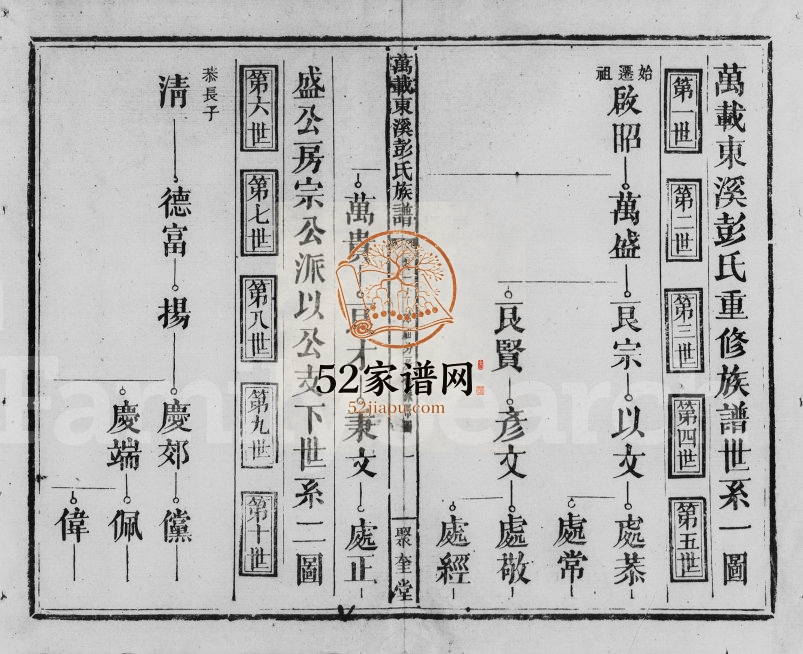 萬載東溪彭氏重修族譜世系一圖
第一世 第二世 第三世 第四世 第五世
始遷祖
啟昭 萬盛 艮宗 以文 處恭
處常
艮賢 彥文 處敬
處經
萬載東溪彭氏族譜
一 聚奎堂
萬貴 才 秉文 處正
盛公房宗公派以公支下世系二圖
第六世 第七世 第八世 第九世 第十世
恭長子
清 德富 揚 慶郊 儻
慶端 佩
偉
52家谱网
52jiapu.com